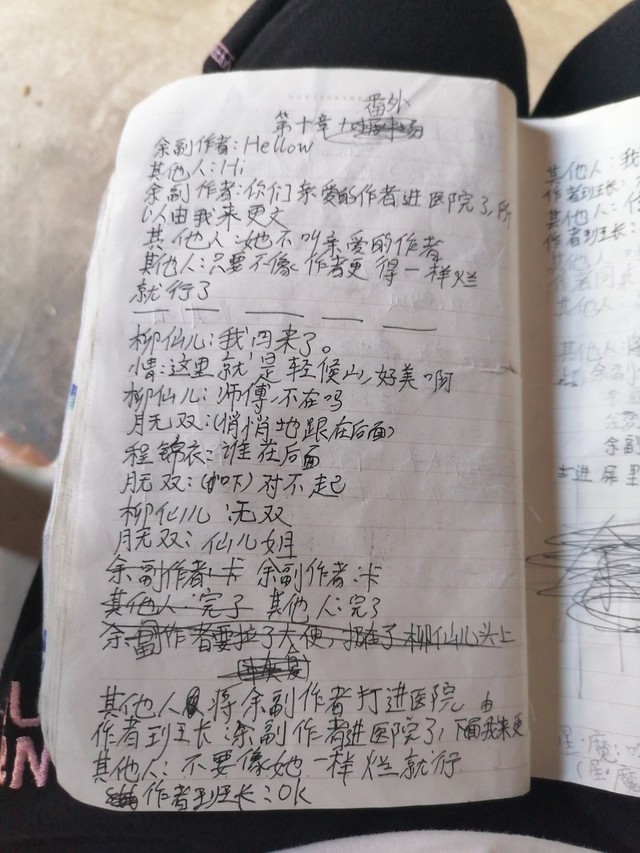 番外
第十章
余副作者:Hellow
其他人:Hi
余副作者:你们亲爱的作者进医院了,所
以由我来更文
其他人:她不叫亲爱的作者
其他人:只要不像作者更得一样烂
就行了
柳仙儿:我回来了。
情:这里就是轻候山,好美啊
柳仙儿:师傅,不在吗
月无双:(悄悄地跟在后面)
程锦衣:谁在后面
月无双:(吓)对不起
柳仙儿:无双
月无双:仙儿姐
余副作者:卡 余副作者:卡
其他人:完了 其他人:完了
余副作者要拉了大便,拉在了柳仙儿头上
其他人将余副作者打进医院 由
作者到班长:余副作者进医院了,下面我来更
其他人:不要像她一样烂就行
作者到班长:OK
其他人:我
作者到班长:
其他人:
作者到班长:
其他人
余副
进屏里